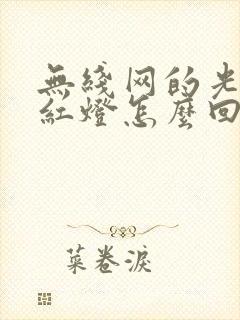 無綫网的光
紅燈怎麼回
菜卷淚